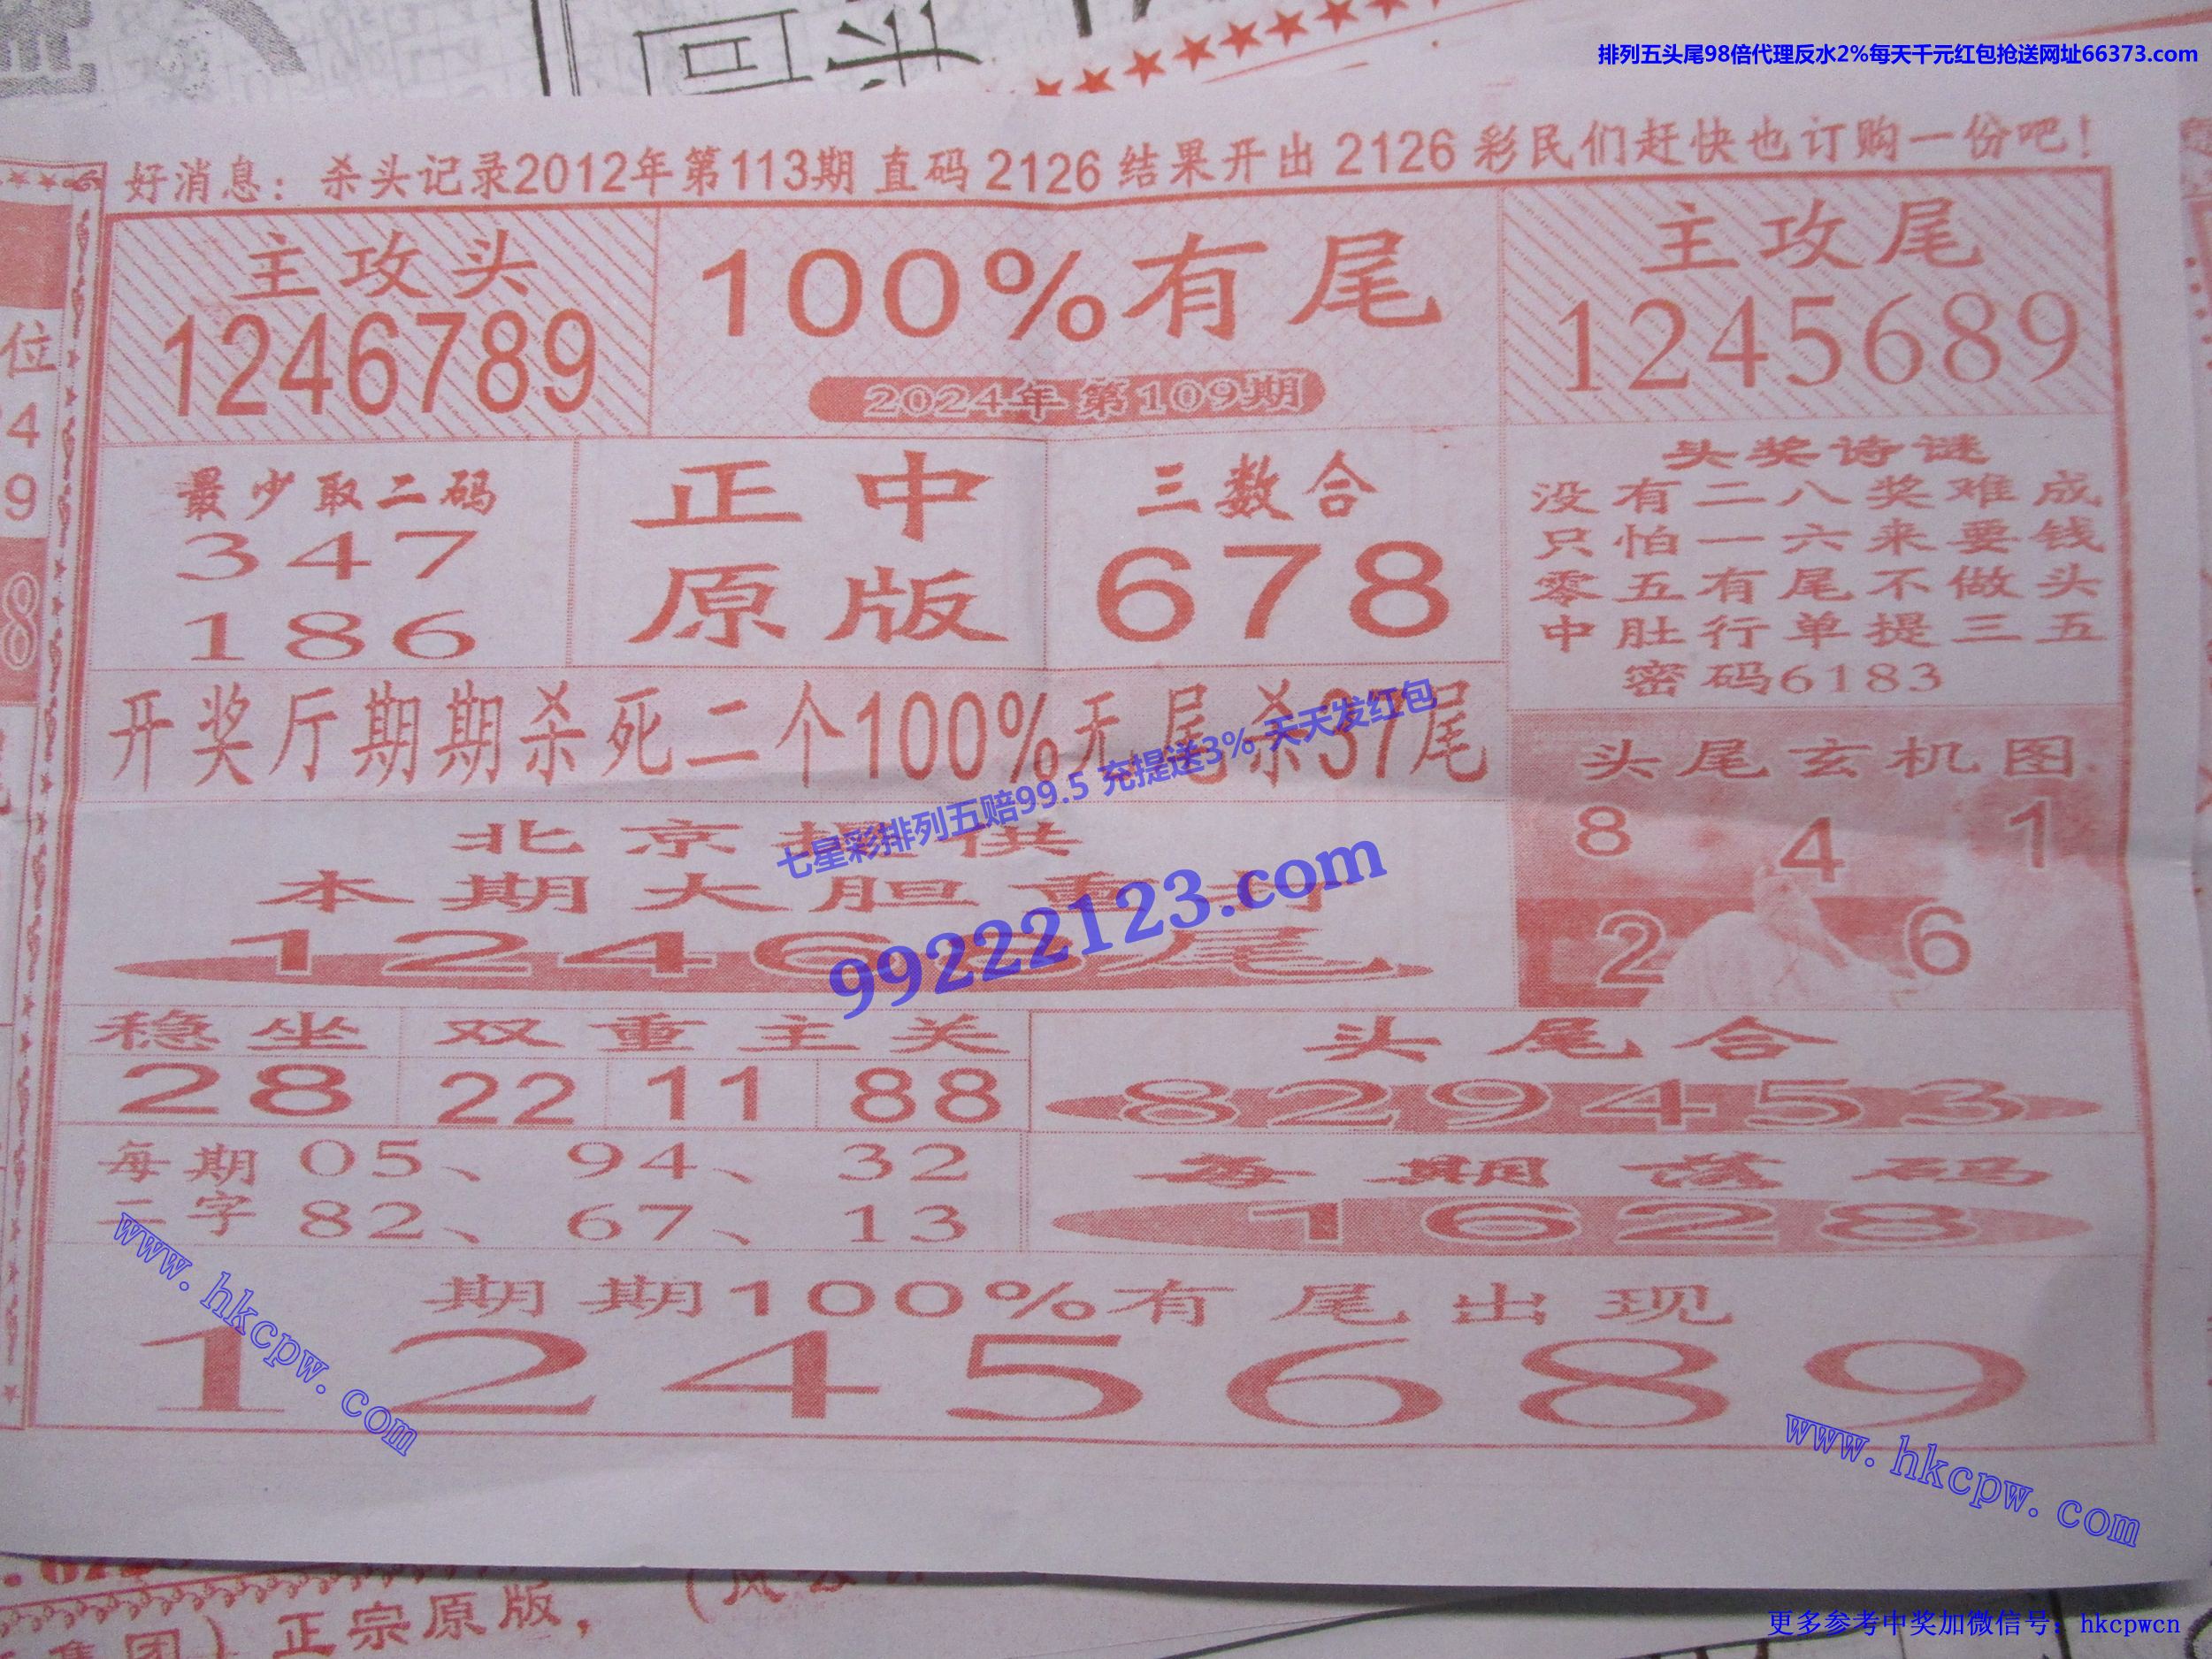 排列五头尾98倍代理反水2%每天千元红包抢送网址66373.com
好消息：杀头记录2012年第113期 直码 2126 结果开出 2126 彩民们赶快也订购一份吧！
主攻头
1246789
100%有尾
2024年第109期
主攻尾
1245689
最少取二码
347
186
正中
原版
三数合
678
头奖诗谜
没有二八奖难成
只怕一六来要钱
零五有尾不做头
中肚行单提三五
密码6183
开奖厅期期杀死二个100%无尾杀37尾
七星彩排列五赔99.5 充提送3% 天天发红包
99222123.com
头尾玄机图
8 4 1
2 6
北京提供
本期大胆重
1246 尾
稳坐
28
双重主关
22 11 88
头尾合
829453
每期 05、 94、 32
二字 82、 67、 13
每期落码
1628
期期100%有尾出现
1245689
www.hkcpw.com
www.hkcpw.com
位
4
9
8
正宗原版，
更多参考中奖加微信号：hkcpwcn